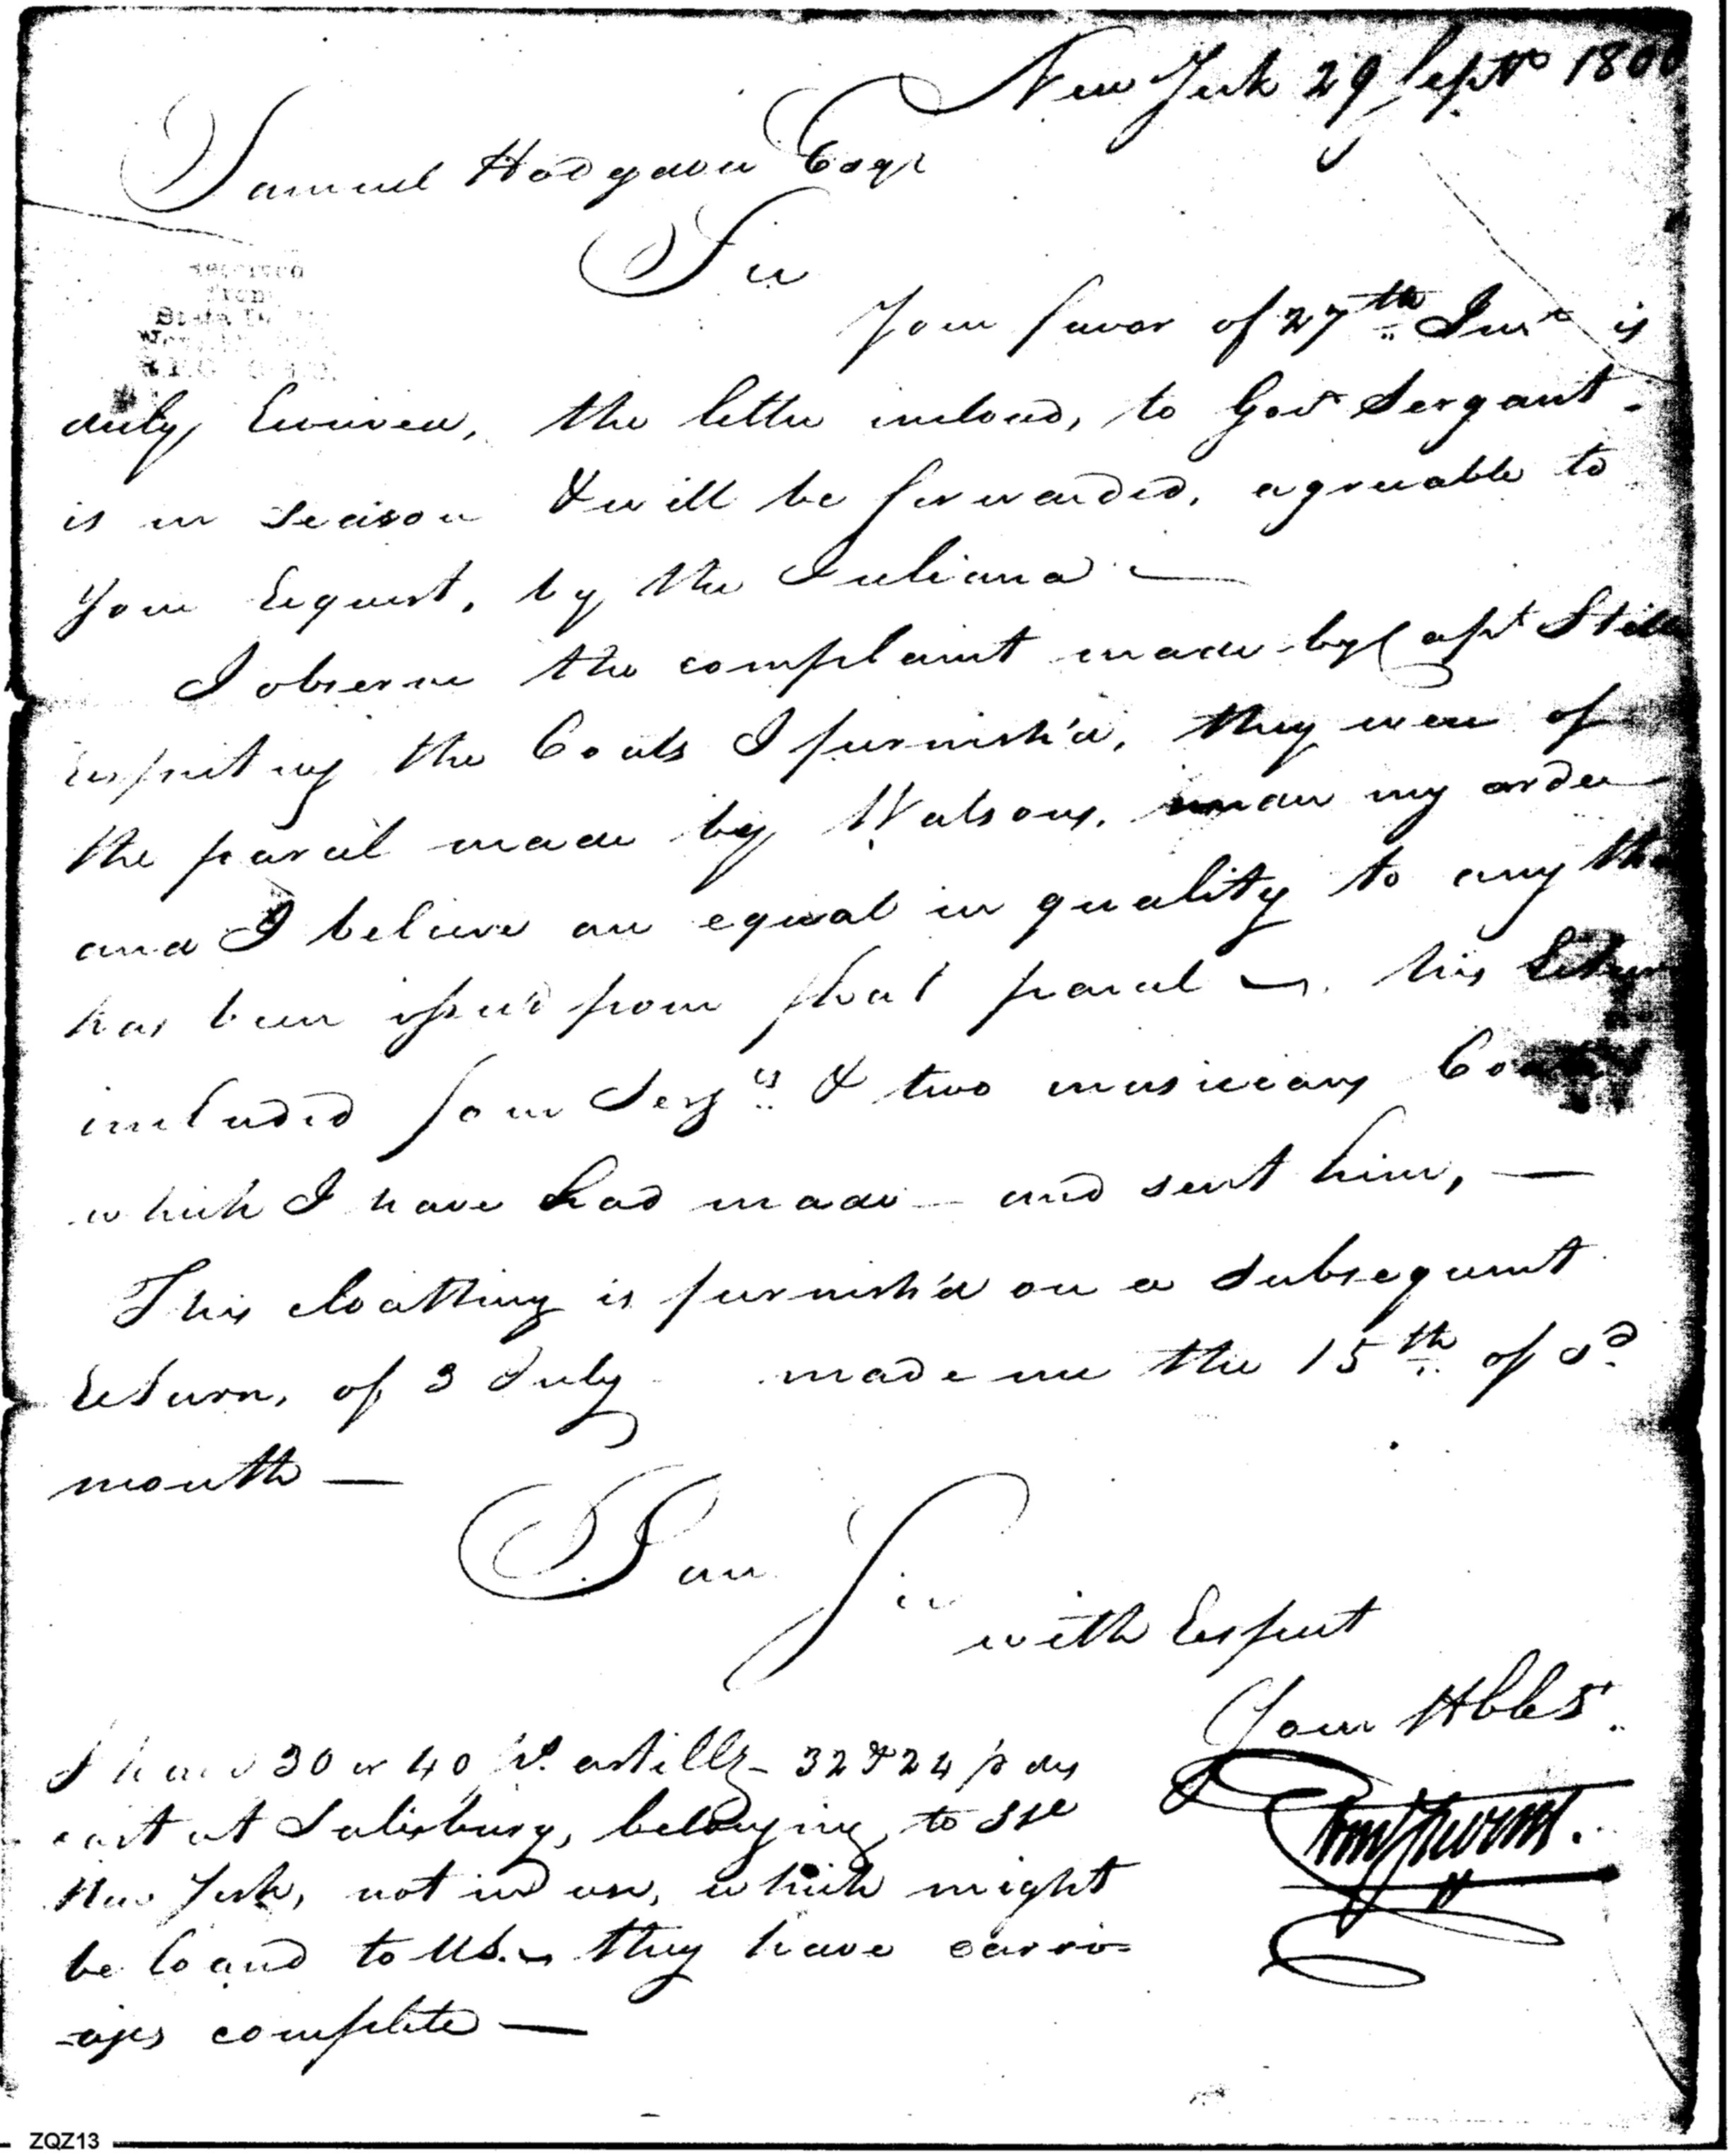 New York 29 Septr 1800
Samuel Hodgdon Esqr
Sir
Your favor of 27th Inst is
duly Received, the letter inclosed, to Govr Sergant
is in season & will be forwarded, agreeable to
your request, by the Juliana —
I observe the complaint made by Capt Stille
respecting the Coats I furnish'd, they were of
the parcel made by Watsons, under my order
and I believe are equal in quality to any tha
has been issued from that parcel —, his Return
included four Sergts & two musicians Coats
which I have had made — and sent him, —
This cloathing is furnish'd on a subsequent
Return, of 3 July made me the 15th of sd
month —
I am Sir
with Respect
Your Hble St.
I have 30 or 40 ps. artilly — 32 & 24 pdrs
cast at Salisbury, belonging to
New York, not in use, which might
be loand to US. — they have carri=
=ages complete —
ZQZ13